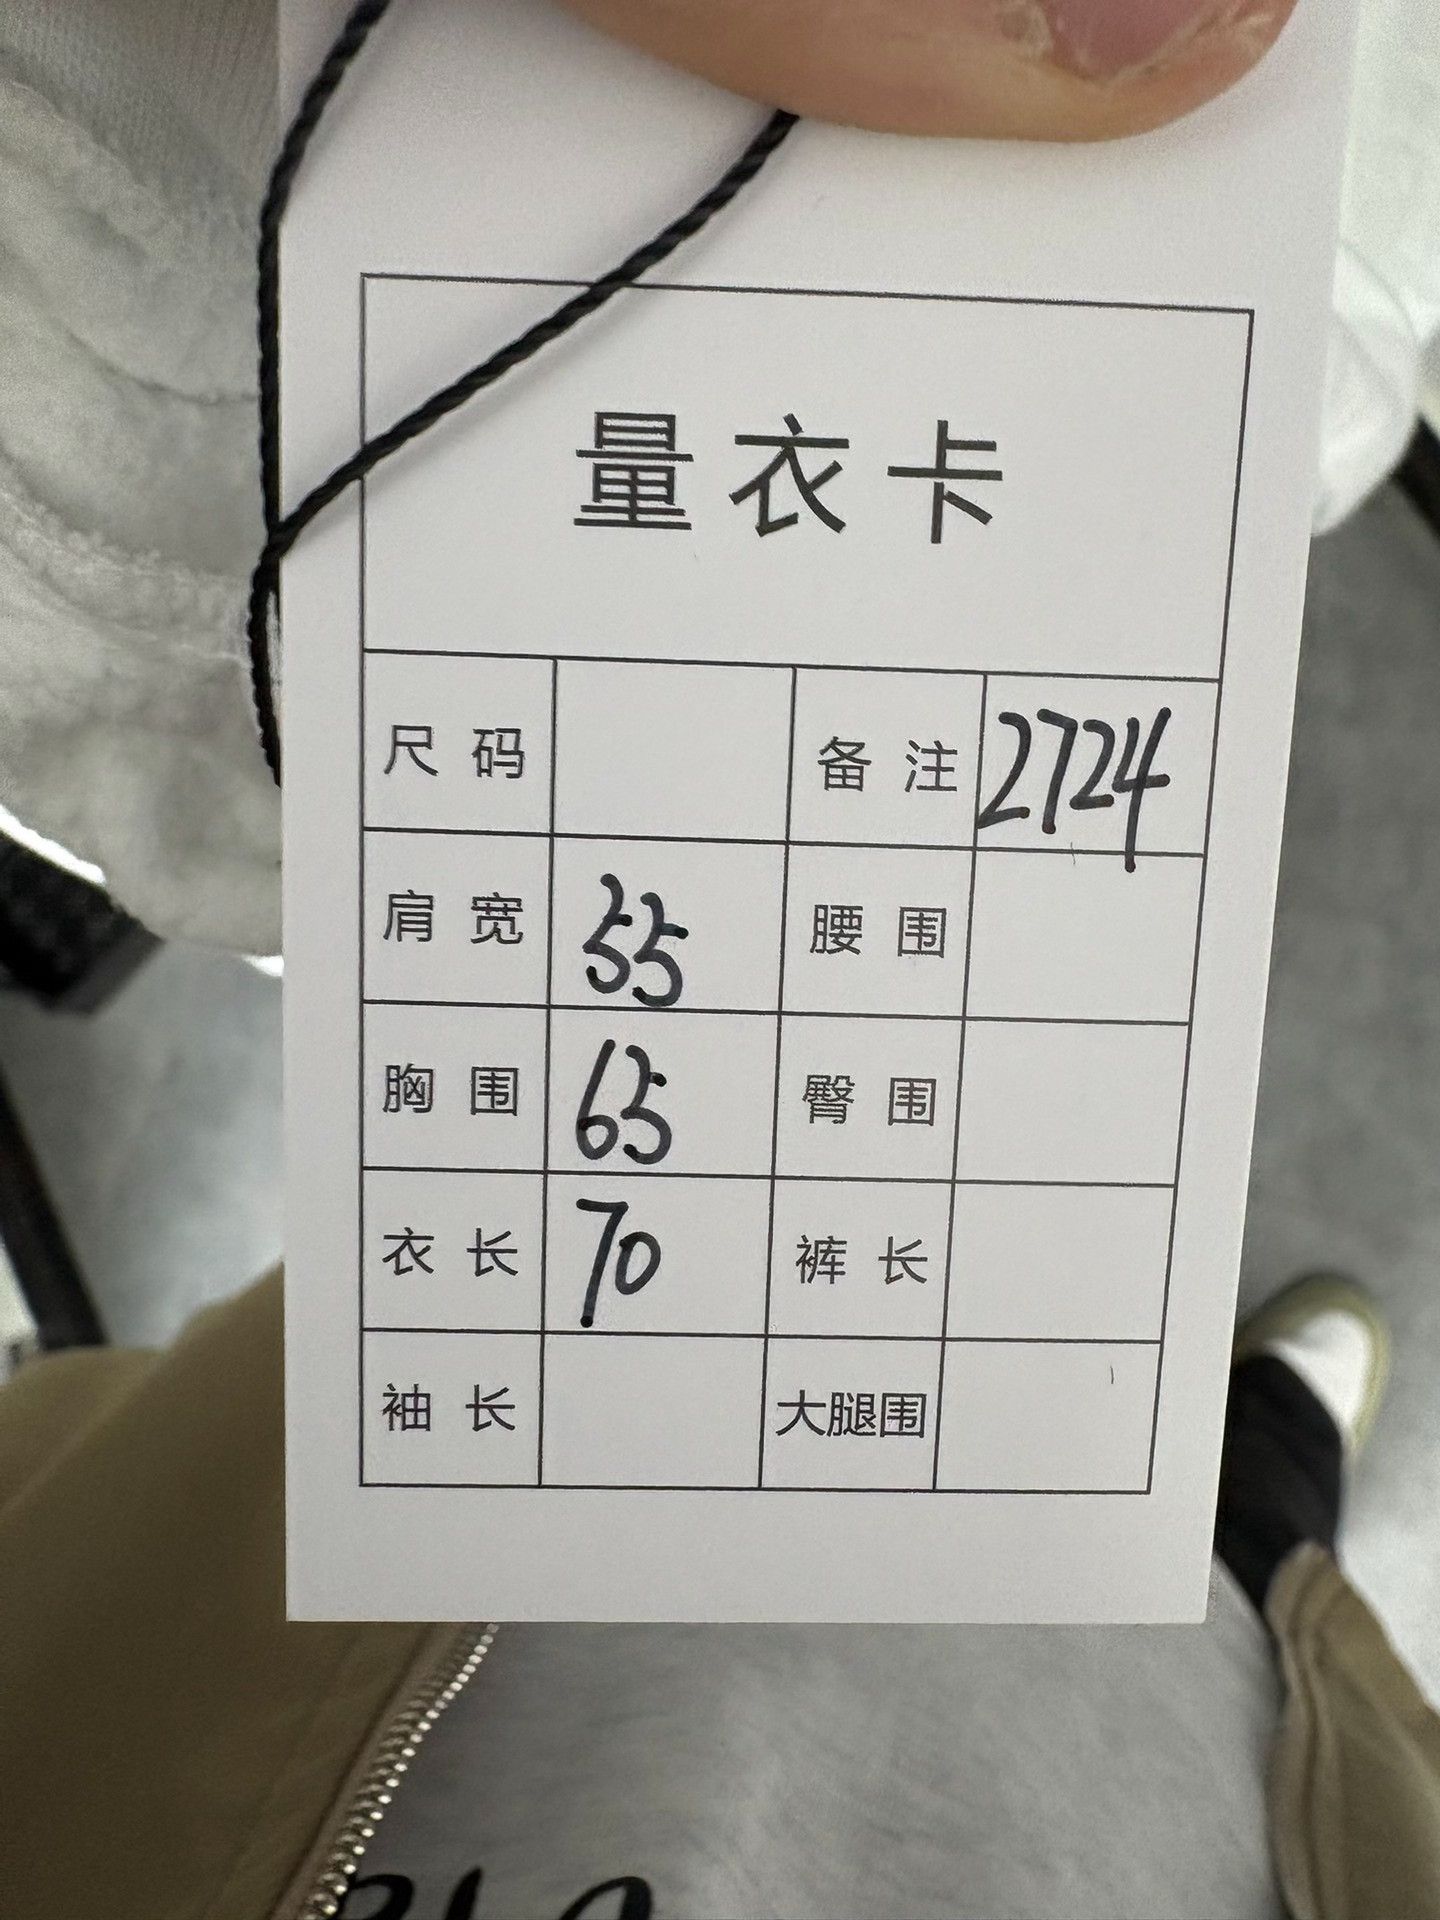 量衣卡
尺码 备注 2724
肩宽 55 腰围
胸围 65 臀围
衣长 70 裤长
袖长 大腿围